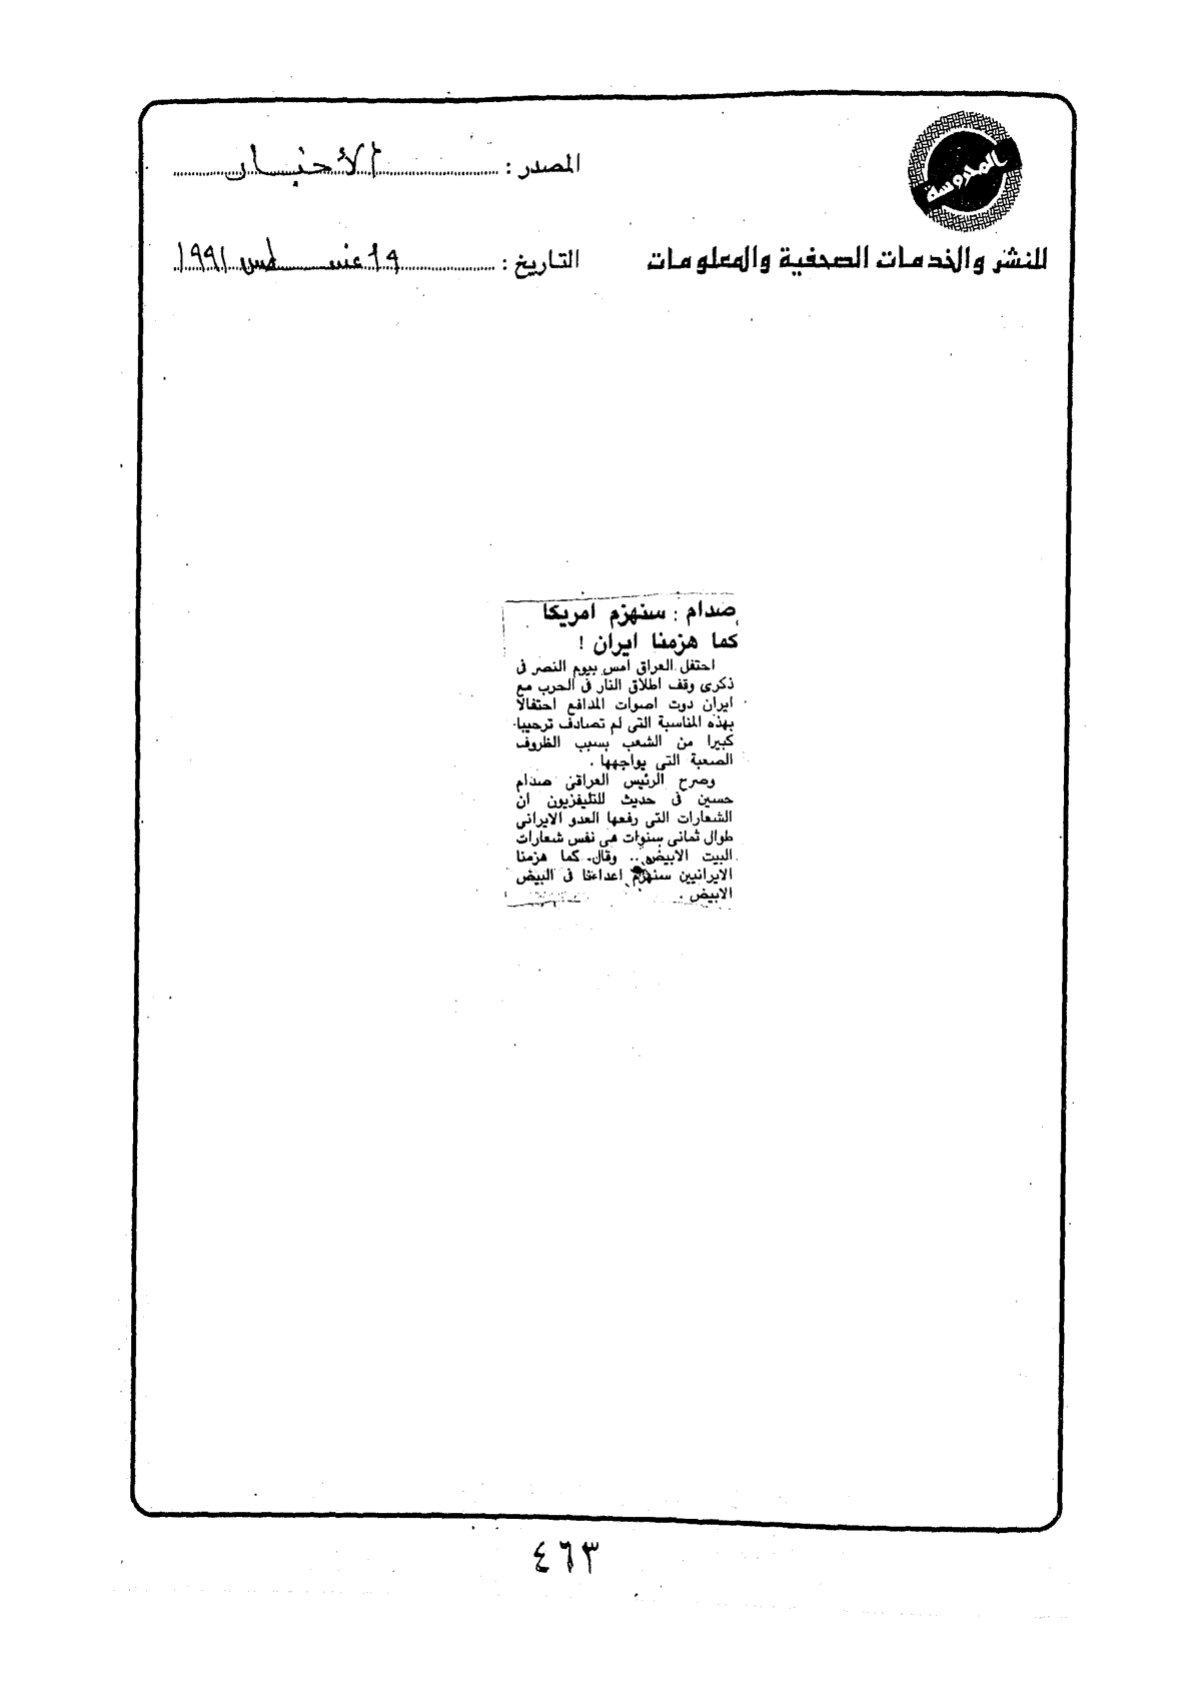 المحروسة
المصدر : الأخبار
للنشر والخدمات الصحفية والمعلومات
التاريخ : ١٩٩١
صدام : سنهزم امريكا
كما هزمنا ايران !
احتفل العراق امس بيوم النصر فى
ذكرى وقف اطلاق النار فى الحرب مع
ايران دوت اصوات المدافع احتفالا
بهذه المناسبة التى لم تصادف ترحيبا
كبيرا من الشعب بسبب الظروف
الصعبة التى يواجهها .
وصرح الرئيس العراقى صدام
حسين فى حديث للتليفزيون ان
الشعارات التى رفعها العدو الايرانى
طوال ثمانى سنوات هى نفس شعارات
البيت الابيض .. وقال كما هزمنا
الايرانيين سنهزم اعداءنا فى البيض
الابيض .
٤٦٣